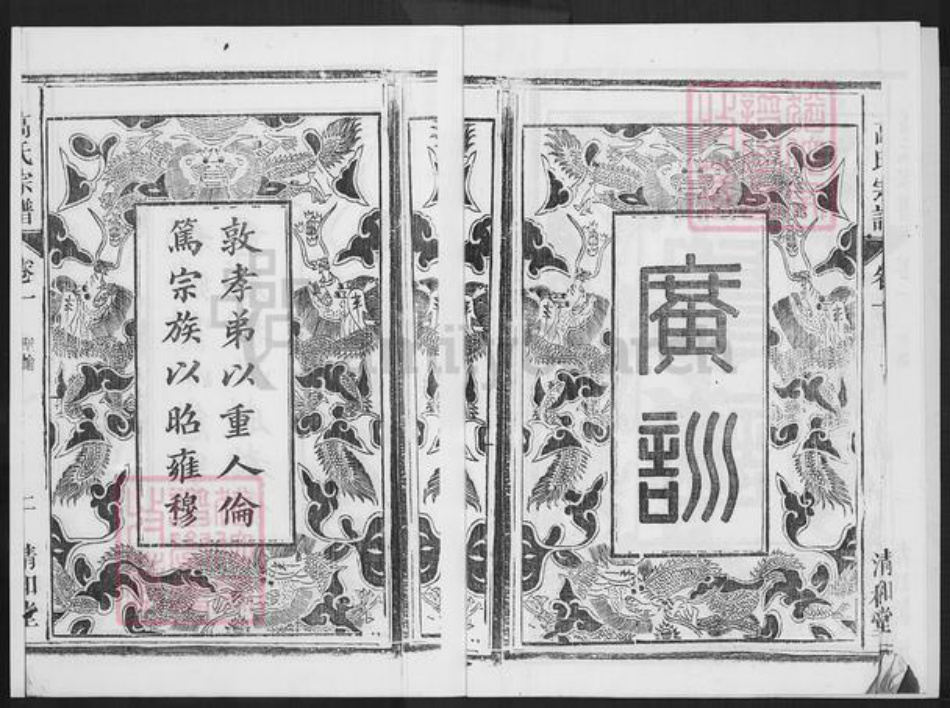 高氏宗譜
卷一
清和堂
廣訓
敦孝弟以重人倫
篤宗族以昭雍穆
高氏宗譜
卷一
聖諭
二
清和堂